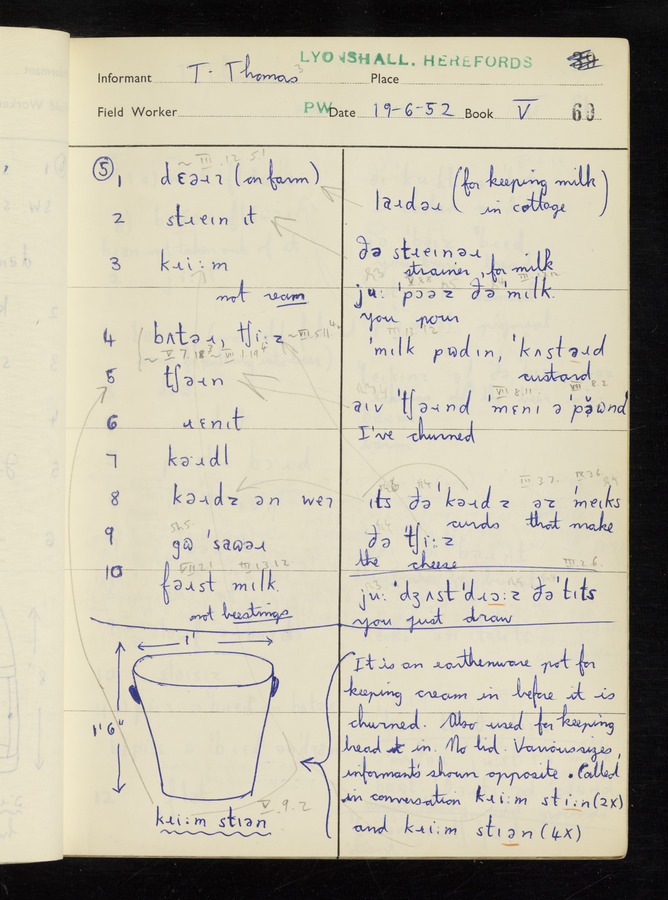 LYONSHALL. HEREFORDS
Informant T. Thomas³ Place
Field Worker PW Date 19-6-52 Book V 60
⑤
1 dɛəɹɪ (on farm)
2 stɹein it
3 kɹi:m
not ream
4 bʌtəɹ, tʃi:z
5 tʃəɹn
6 ɹɛnɪt
7 kəɹdl
8 kəɹdz ən wei
9 gɷ 'saɷəɹ
10 fəɹst milk.
not beestings
laɹdəɹ (for keeping milk
in cottage)
ðə stɹeinəɹ
strainer, for milk
ju: 'pɔəz ðə 'milk.
you pour
'milk pɷdɪn, 'kʌstəɹd
custard
aiv 'tʃəɹnd 'mɛni ə 'pəɷnd
I've churned
its ðə 'kəɹdz əz 'meiks
curds that make
ðə 'tʃi:z
the cheese
ju: 'dʒʌst 'dɹɔ:z ðə 'tɪts
you just draw
1'
1'6"
kɹi:m stɪən
V.9.2
It is an earthenware pot for
keeping cream in before it is
churned. Also used for keeping
bread in. No lid. Various sizes,
informant's shown opposite. Called
in conversation kɹi:m sti:n (2x)
and kɹi:m stɪən (4x)